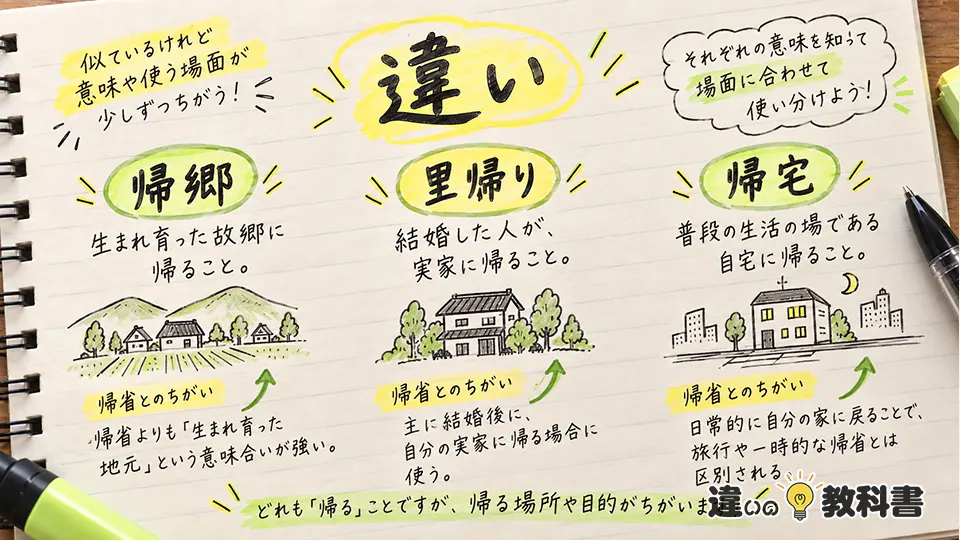 似ているけれど
意味や使う場面が
少しずつちがう!
違い
それぞれの意味を知って
場面に合わせて
使い分けよう!
帰郷
生まれ育った故郷に
帰ること。
帰省とのちがい
帰省よりも「生まれ育った
地元」という意味合いが強い。
里帰り
結婚した人が、
実家に帰ること。
帰省とのちがい
主に結婚後に、
自分の実家に帰る場合に
使う。
帰宅
普段の生活の場である
自宅に帰ること。
帰省とのちがい
日常的に自分の家に戻ることで、
旅行や一時的な帰省とは
区別される
どれも「帰る」ことですが、帰る場所や目的がちがいま
違いの教科書